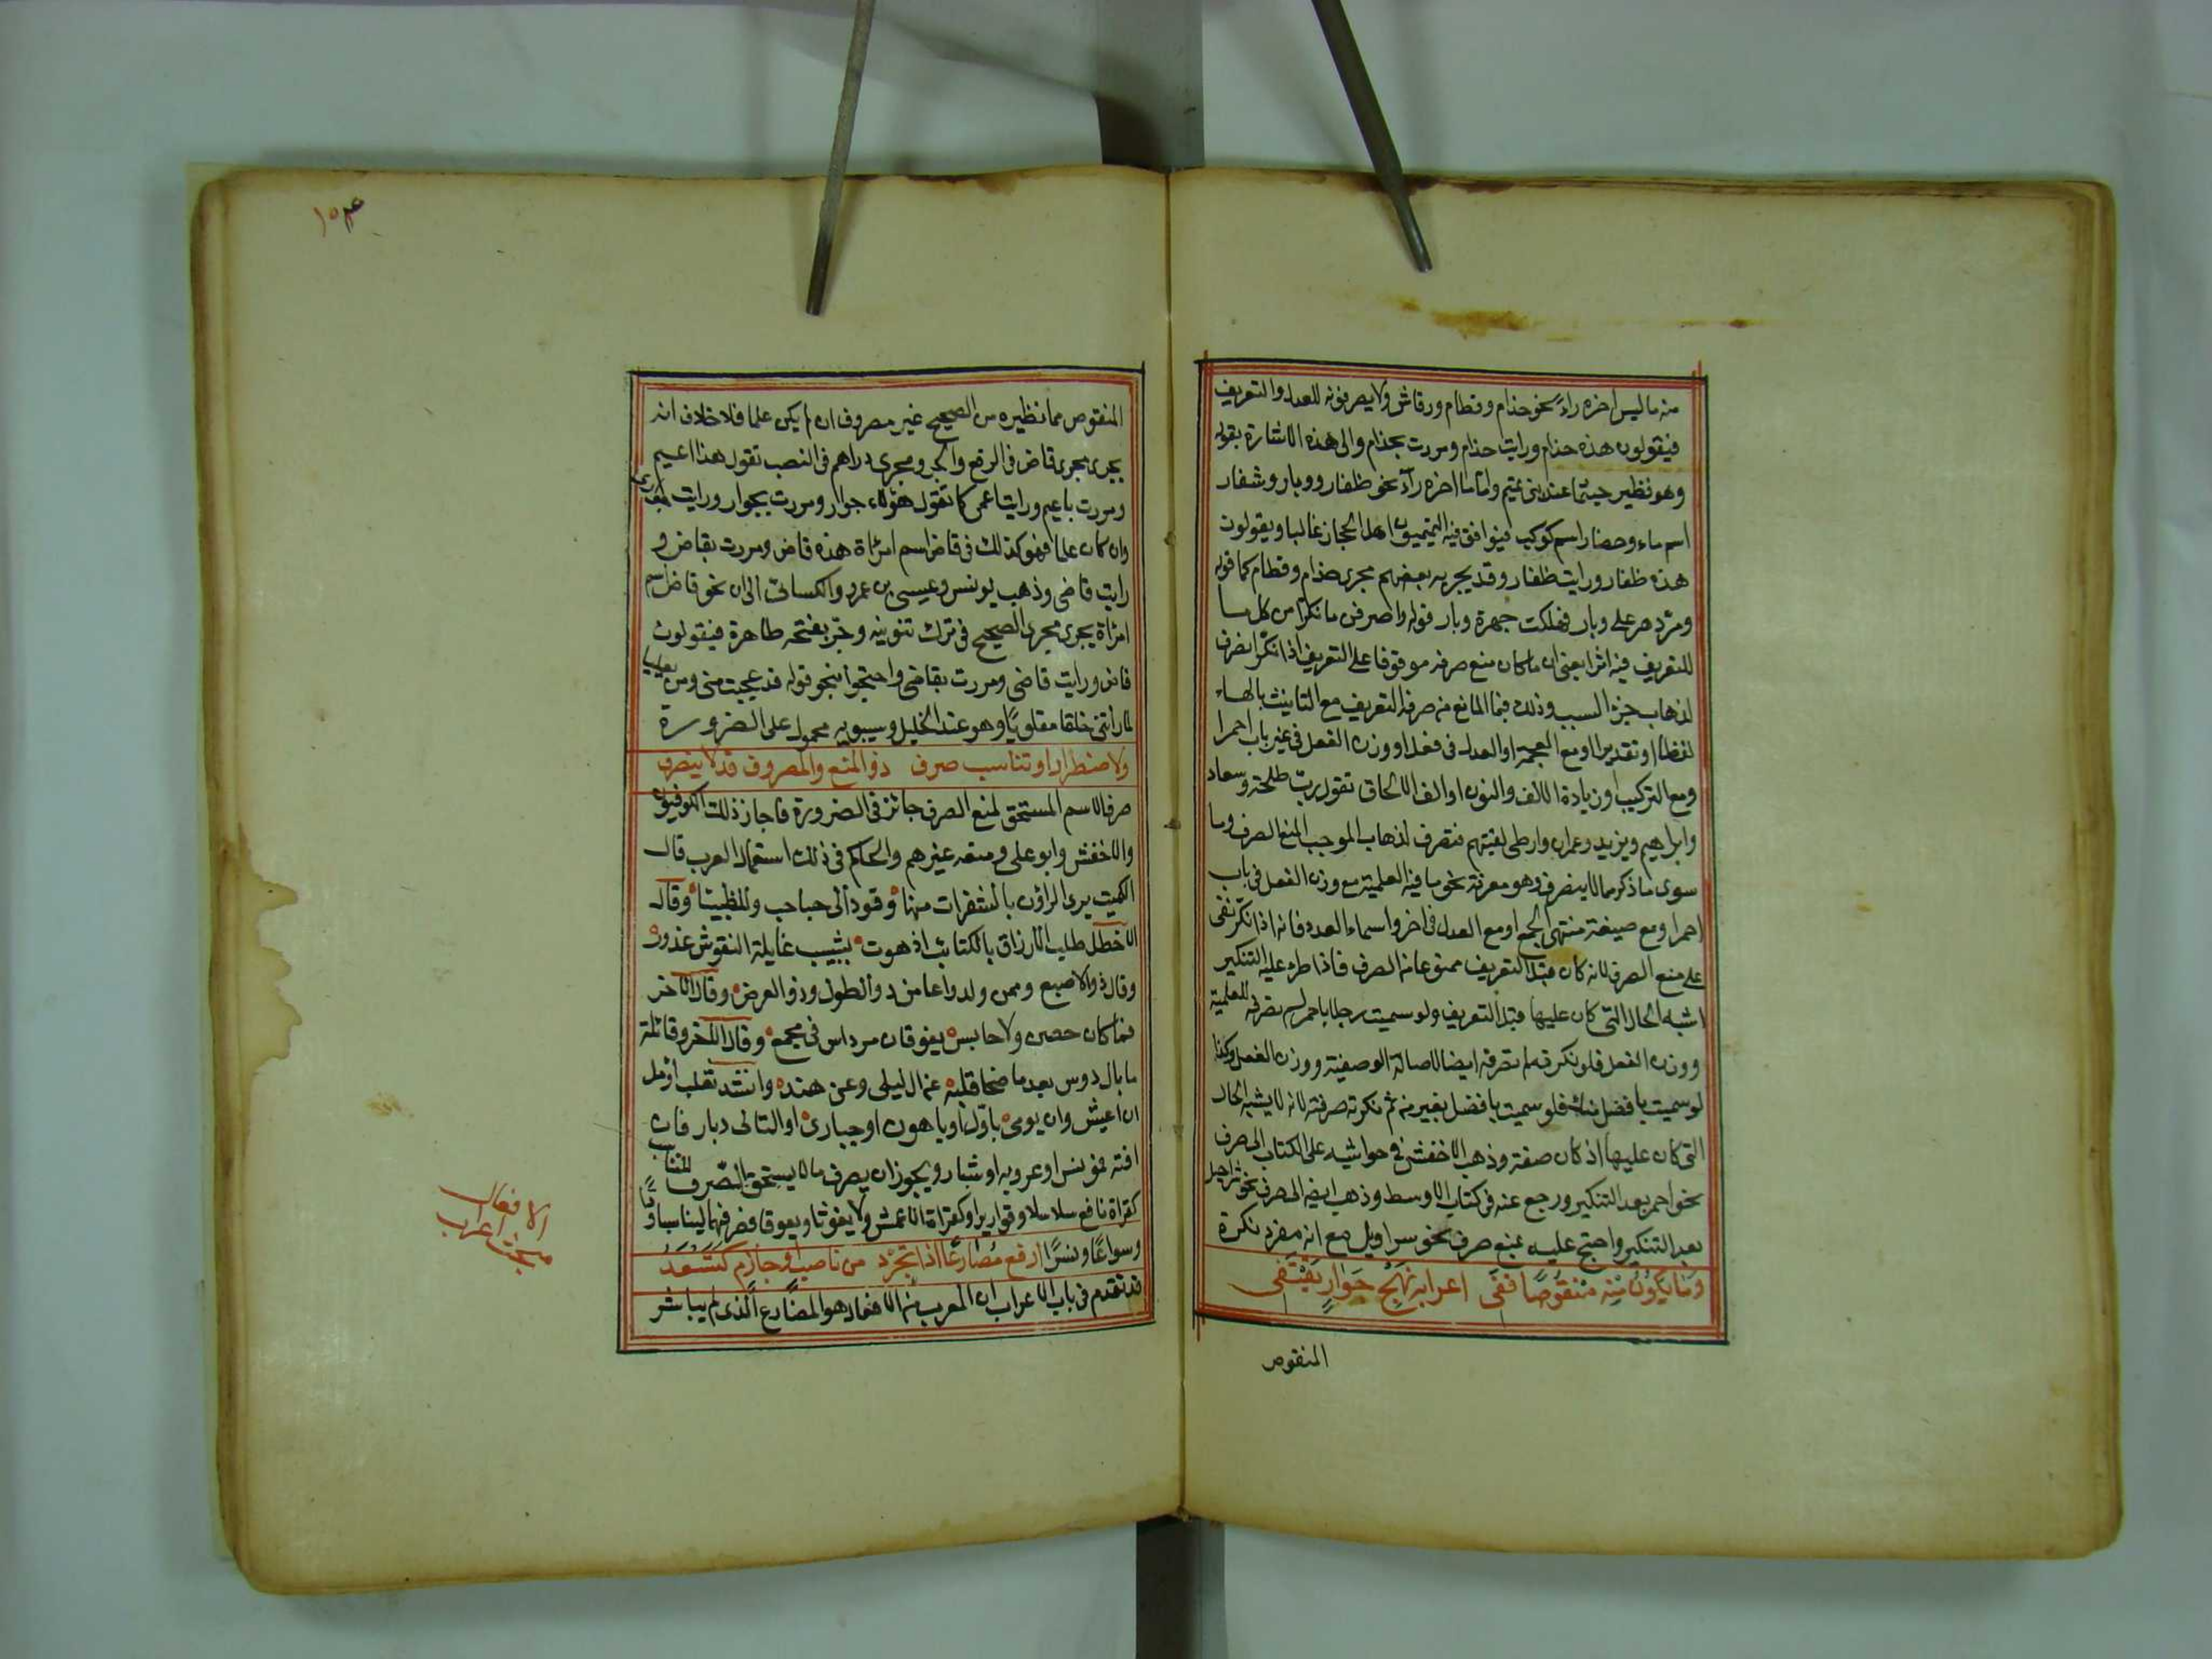 منه ما ليس اخره راء نحو حذام وقطام ورقاش ولا يصرفونه للعدل والتعريف
فيقولون هذه حذام ورايت حذام ومررت بحذام والى هذه الاشارة بقوله
وهو نظير جشما عند بنى تميم واما ما اخره راء نحو ظفار ووبار وشفار
اسم ماء وحضار اسم كوكب فيوافق فيه التميميون اهل الحجاز غالبا ويقولون
هذه ظفار ورايت ظفار وقد يجريه بعضهم مجرى حذام وقطام كما قوله
ومر دهر على وبار فهلكت جهرة وبار قوله واصرفن ما نكرا من كل ما
للتعريف فيه اثرا يعنى ان ما كان منع صرفه موقوفا على التعريف اذا نكر انصرف
لذهاب جزء السبب وذلك فيما المانع من صرفه التعريف مع التانيث بالهاء
لفظا او تقديرا او مع العجمة او العدل فى فعل او وزن الفعل فى غير باب احمرا
ومع التركيب او زيادة الالف والنون او الف الالحاق تقول رب طلحة وسعاد
وابراهيم ويزيد وعمران وارطى لقيتهم فتصرف لذهاب الموجب المنع الصرف وما
سوى ما ذكر مما لا ينصرف وهو معرفة نحو ما فيه العلمية مع وزن الفعل فى باب
احمر او مع صيغة منتهى الجمع او مع العدل فى اخر واسماء العدد فانه اذا نكر بقى
على منع الصرف لانه كان قبل التعريف ممنوعا من الصرف فاذا طرء عليه التنكير
اشبه الحال التى كان عليها قبل التعريف ولو سميت رجلا باحمر لم تصرفه للعلمية
ووزن الفعل فلو نكرته لم تصرفه ايضا لاصالة الوصفية ووزن الفعل وكذا
لو سميت بافضل منك فلو سميت بافضل بغير من ثم نكرته صرفته لانه لا يشبه الحال
التى كان عليها اذ كان صفة وذهب الاخفش فى حواشيه على الكتاب الى صرف
نحو احمر بعد التنكير ورجع عنه فى كتاب الاوسط وذهب ايضه الى صرف نحو شراحيل
بعد التنكير واحتج عليه بمنع صرف نحو سراويل مع انه مفرد نكرة
وَمَا يَكُونُ مِنْه مَنْقُوصًا فَفى اعرابه نَهْجَ جَوَارٍ يَقْتَفى
المنقوص
١٥٣
المنقوص مما نظيره من الصحيح غير مصروف ان لم يكن علما فلا خلاف انه
يجرى مجرى قاض فى الرفع والجر ومجرى دراهم فى النصب تقول هذا اعيم
ومررت باعيم ورايت اعمى كما تقول هؤلاء جوار ومررت بجوار ورايت جوارى
وان كان علما فهو كذلك فى قاض اسم امراة هذه قاض ومررت بقاض و
رايت قاضى وذهب يونس وعيسى بن عمر والكسائى الى ان نحو قاض اسم
امراة يجرى مجرى الصحيح فى ترك تنوينه وجره بفتحه ظاهرة فيقولون
قاض ورايت قاضى ومررت بقاضى واحتجوا بنحو قوله قد عجبت منى ومن يعيليا
لما راتنى خلقا مقلوليا وهو عند الخليل وسيبويه محمول على الضرورة
ولاضطرار او تناسب صرف ذو المنع والمصروف قد لا ينصرف
صرف الاسم المستحق لمنع الصرف جائز فى الضرورة فاجاز ذلك الكوفيون
والاخفش وابو على ومنعه غيرهم والحاكم فى ذلك استعمال العرب قال
الكميت يرى الراؤن بالشفرات منها وقود ابى حباحب وللظبينا وقال
الاخطل طلب الازراق بالكتائب اذ هوت بشبيب غايلة النفوس غدور
وقال ذو الاصبع وممن ولدوا عامر ذو الطول وذو العرض وقال الاخر
فما كان حصن ولا حابس يفوقان مرداس فى مجمع وقال الاخر وقائلة
ما بال دوس بعد ما صحا قلبه عن ال ليلى وعن هند وانشد ثعلب اؤمل
ان اعيش وان يومى باول او باهون او جبار او التالى دبار فان
افته فمونس او عروبه او شيار ويجوز ان يصرف ما لا يستحق الصرف للتناسب
كقراة نافع سلاسلا وقواريرا وكقراة الاعمش ولا يغوثا ويعوقا فصرفهما ليناسبا ودًا
وسواعًا ونسرًا ارفع مُضارعًا اذا تجرّد من ناصب وجازم كتَسْعَدُ
قد تقدم فى باب الاعراب ان المعرب من الافعال هو المضارع الذى لم يباشر
مبحث اعراب
الافعال